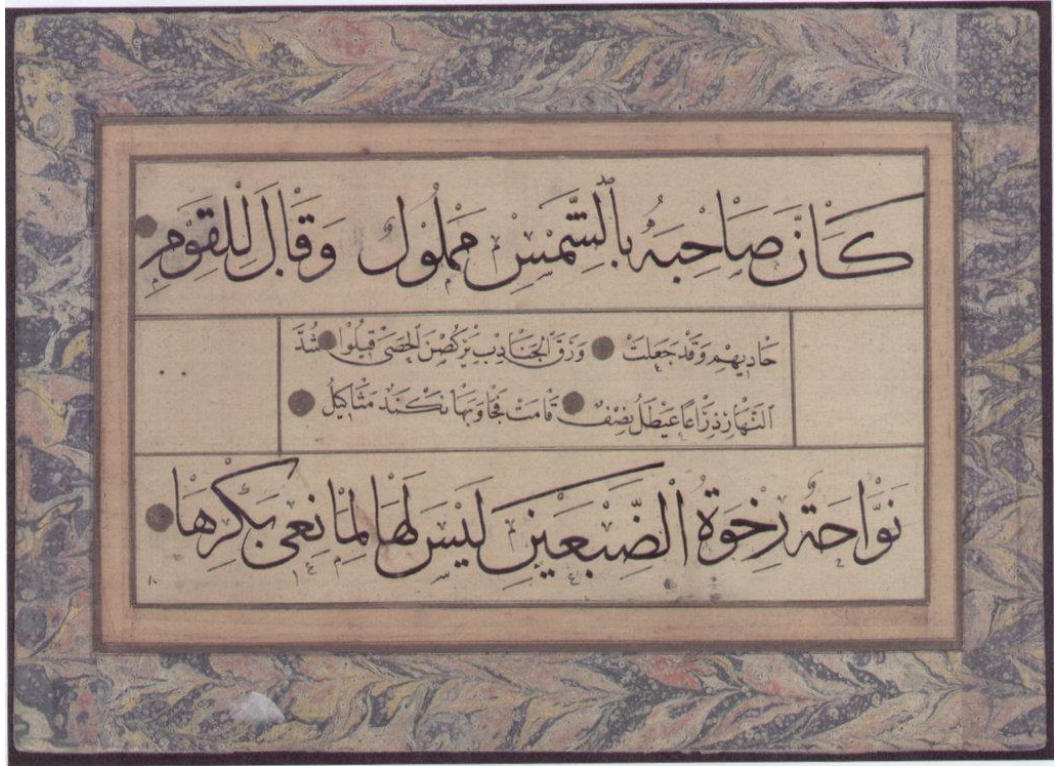 كَانَّ صَاحِبَهُ بِالشَّمْسِ مَمْلُولُ وَقَالَ لِلْقَوْمِ
حَادِيهِمْ وَقَدْ جَعَلَتْ وُرْقُ الْجَنَادِبِ يَرْكُضْنَ الْحَصَى قِيلُوا شَدَّ
النَّهَارِ ذِرَاعَا عَيْطَلٍ نَصَفٍ قَامَتْ فَجَاوَبَهَا نُكْدٌ مَثَاكِيلُ
نَوَّاحَةٌ رِخْوَةُ الضَّبْعَيْنِ لَيْسَ لَهَا لَمَّا نَعَى بِكْرَهَا